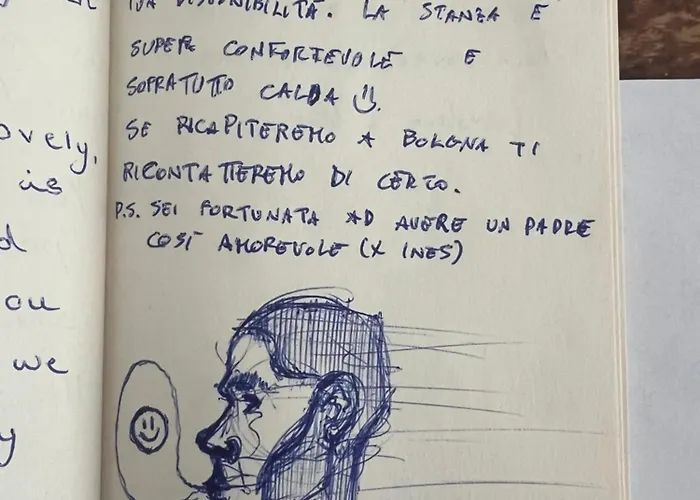 ovely,
is
d
ou
we
y
TUA DISPONIBILITÀ. LA STANZA È
SUPER CONFORTEVOLE E
SOPRATUTTO CALDA
SE RICAPITEREMO A BOLOGNA TI
RICONTATTEREMO DI CERTO.
P.S. SEI FORTUNATA AD AVERE UN PADRE
COSÌ AMOREVOLE (X INES)